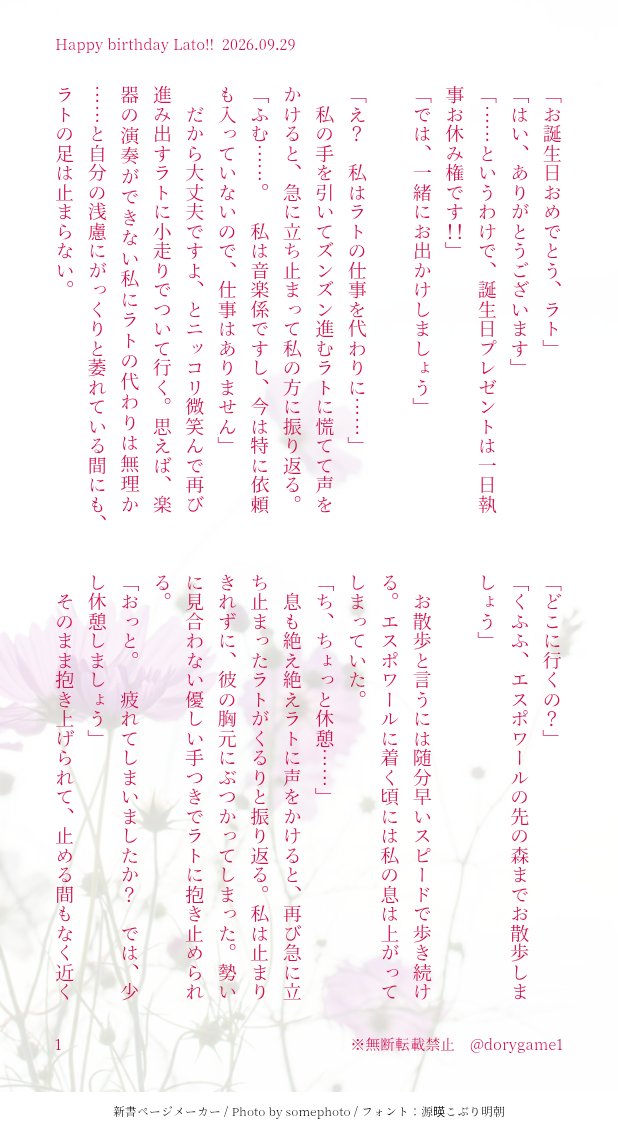 Happy birthday Lato!!  2026.09.29
「お誕生日おめでとう、ラト」
「はい、ありがとうございます」
「……というわけで、誕生日プレゼントは一日執
事お休み権です!!」
「では、一緒にお出かけしましょう」
「え？　私はラトの仕事を代わりに……」
　私の手を引いてズンズン進むラトに慌てて声を
かけると、急に立ち止まって私の方に振り返る。
「ふむ……。　私は音楽係ですし、今は特に依頼
も入っていないので、仕事はありません」
　だから大丈夫ですよ、とニッコリ微笑んで再び
進み出すラトに小走りでついて行く。思えば、楽
器の演奏ができない私にラトの代わりは無理か
……と自分の浅慮にがっくりと萎れている間にも、
ラトの足は止まらない。
「どこに行くの？」
「くふふ、エスポワールの先の森までお散歩しま
しょう」
　お散歩と言うには随分早いスピードで歩き続け
る。エスポワールに着く頃には私の息は上がって
しまっていた。
「ち、ちょっと休憩……」
　息も絶え絶えラトに声をかけると、再び急に立
ち止まったラトがくるりと振り返る。私は止まり
きれずに、彼の胸元にぶつかってしまった。勢い
に見合わない優しい手つきでラトに抱き止められ
る。
「おっと。　疲れてしまいましたか？　では、少
し休憩しましょう」
　そのまま抱き上げられて、止める間もなく近く
1
※無断転載禁止　@dorygame1
新書ページメーカー / Photo by somephoto / フォント：源暎こぶり明朝